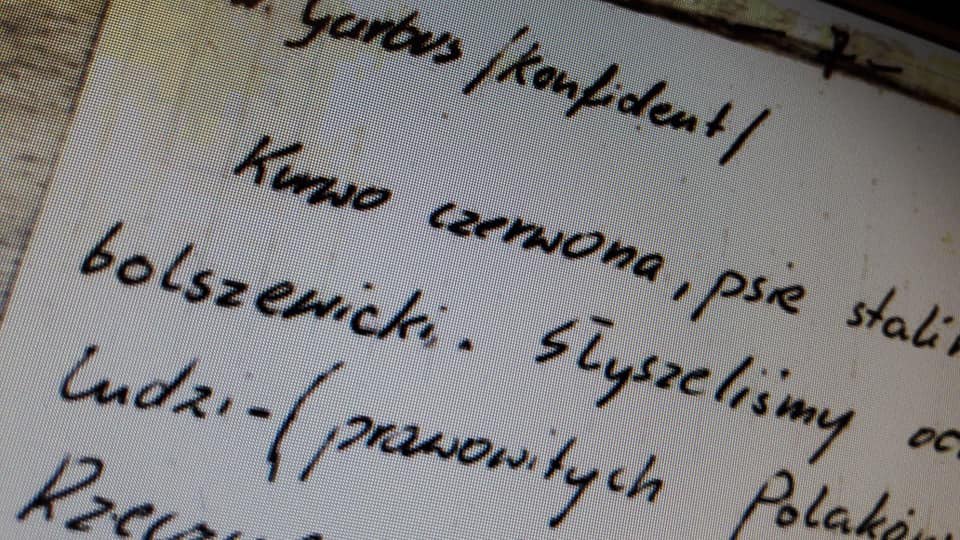 Garbus /konfident/
Kurwo czerwona, psie
bolszewicki. Słyszeliśmy
ludzi-(prawowitych Polaków